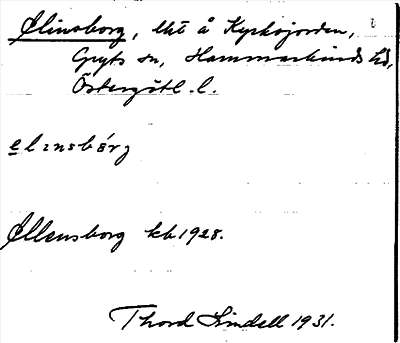 Elinsborg, lht å Kyrkojorden,
Gryts sn, Hammarkinds hd,
Östergötl. l.
elinsbårg
Ellensborg kb 1928.
Thord Lindell 1931.